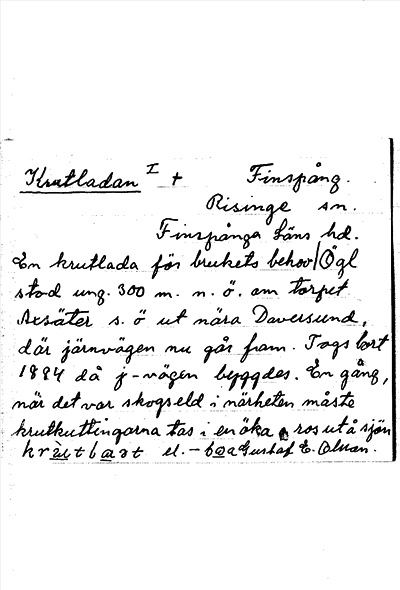 Krutladan I + Finspång.
Risinge sn.
Finspånga läns hd.
En krutlada för brukets behov/Ögl
stod ung. 300 m. n. ö. om torpet
Axsäter s. ö ut nära Daversund,
där järnvägen nu går fram. Togs bort
1884 då j-vägen byggdes. En gång,
när det var skogseld i närheten måste
krutkuttingarna tas i en öka o ros ut å sjön
el. Gustaf E. Olsson.